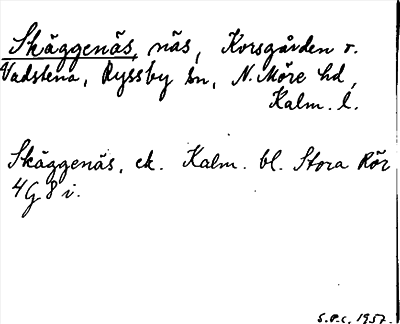 Skäggenäs, näs, Korsgården v.
Vadstena, Ryssby sn, N. Möre hd,
Kalm. l.
Skäggenäs, ek. Kalm. bl. Stora Rör
4G 8 i.
S.P.C. 1957.